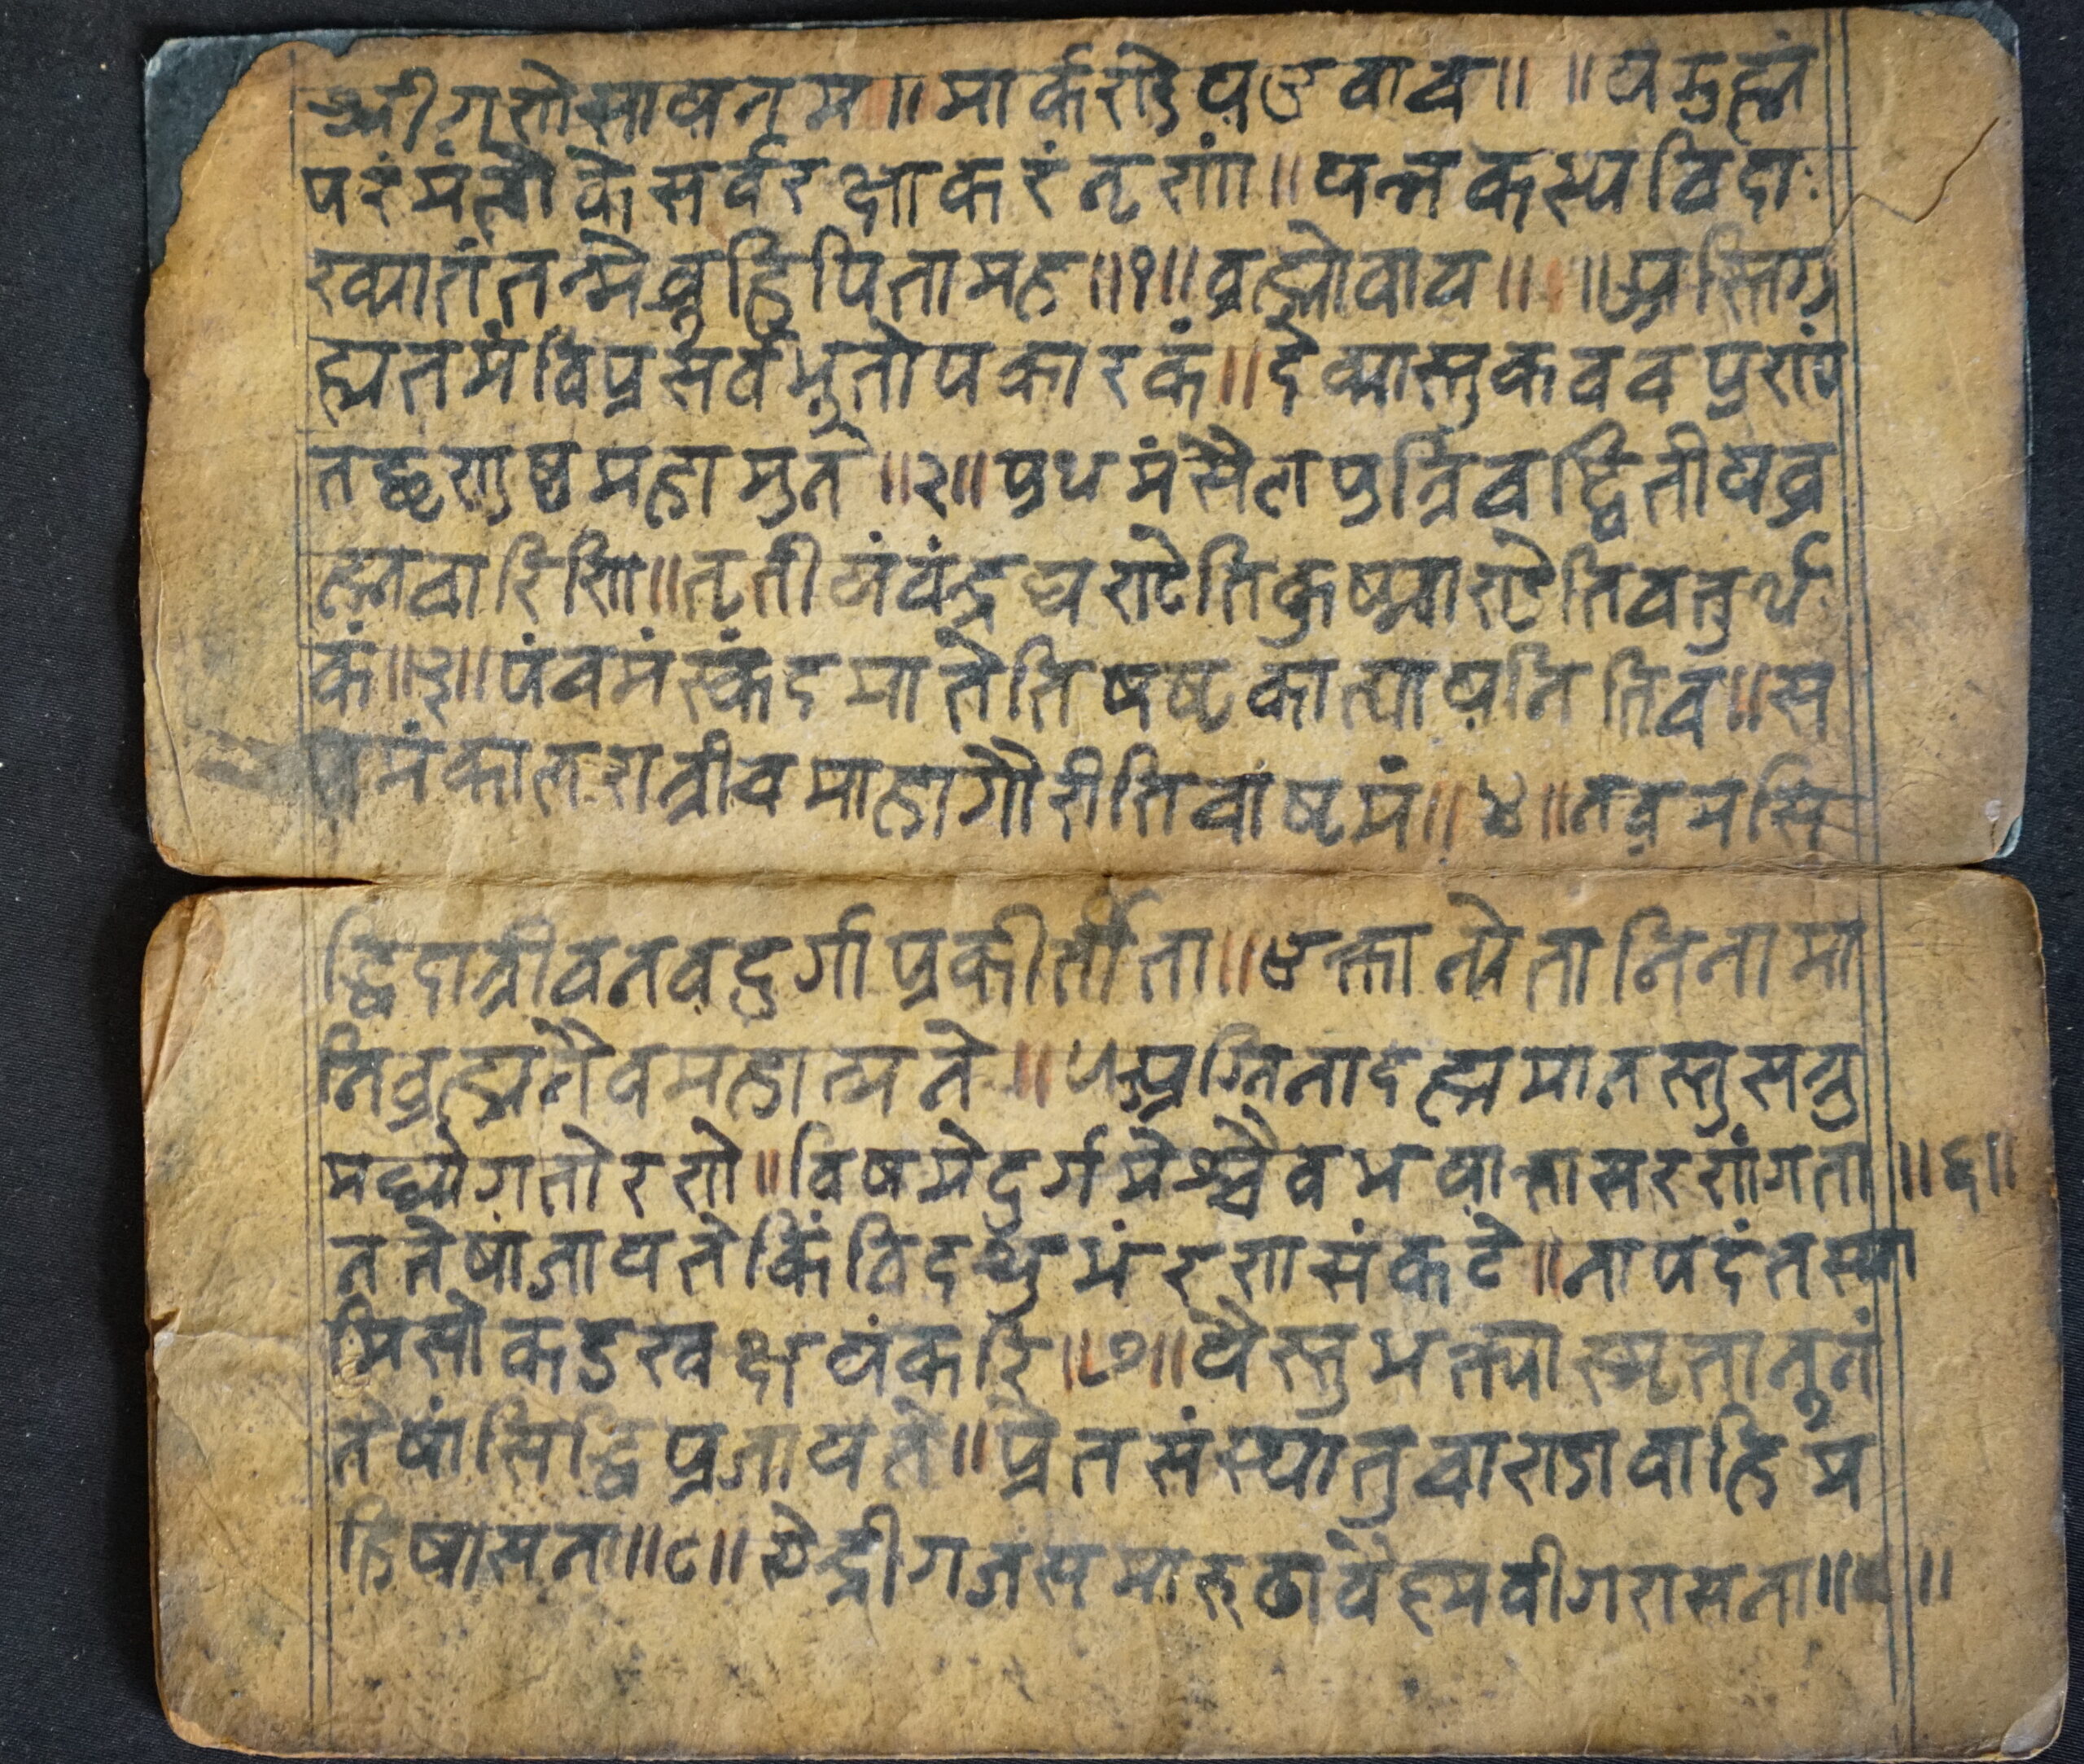 श्रीगणेसायनमः॥मार्कराडेयउवाच॥॥यगुह्यं
परंमंलोकेसर्वरक्षाकरंनृणां॥यन्नकस्यचिदा
ख्यातंतन्मेब्रुहिपितामह॥१॥ब्रह्मोवाच॥॥अस्तिगु
ह्यतमंविप्रसर्वभुतोपकारकं॥देव्यास्तुकवचपुरांण
तछृणुष्वमहामुने॥२॥प्रथमंसैलपुत्रिचद्वितीयब्र
ह्मचारिणि॥तृतीयंचंद्रघराटेतिकुष्माराटेतिचतुर्थ
कं॥३॥पंचमंस्कंदमातेतिषष्टकात्यायनितिच॥स
प्तमंकालरात्रीचमाहागौरीतिचाष्टमं॥४॥नवमसि
द्धिदात्रीचनवदुर्गाप्रकीर्तीता॥उक्तान्येतानिनामा
निब्रह्मनैवमहात्मने॥५अग्निनादह्ममानस्तुसत्रु
मध्येगतोरणे॥विषमेदुर्गमेश्चैवभयार्त्तासरणंगता॥६॥
नतेषांजायतेकिंचिदशुभंरणसंकटे॥नापदंतस्या
मिसोकडुखक्षयंकरि॥७॥यैस्तुभक्त्यास्मृतानुनं
तेषांसिद्धिप्रजायते॥प्रेतसंस्थातुचाराजवाहिम
हिषासना॥८॥येद्रीगजसमारुठावैह्मवीगरासना॥९॥